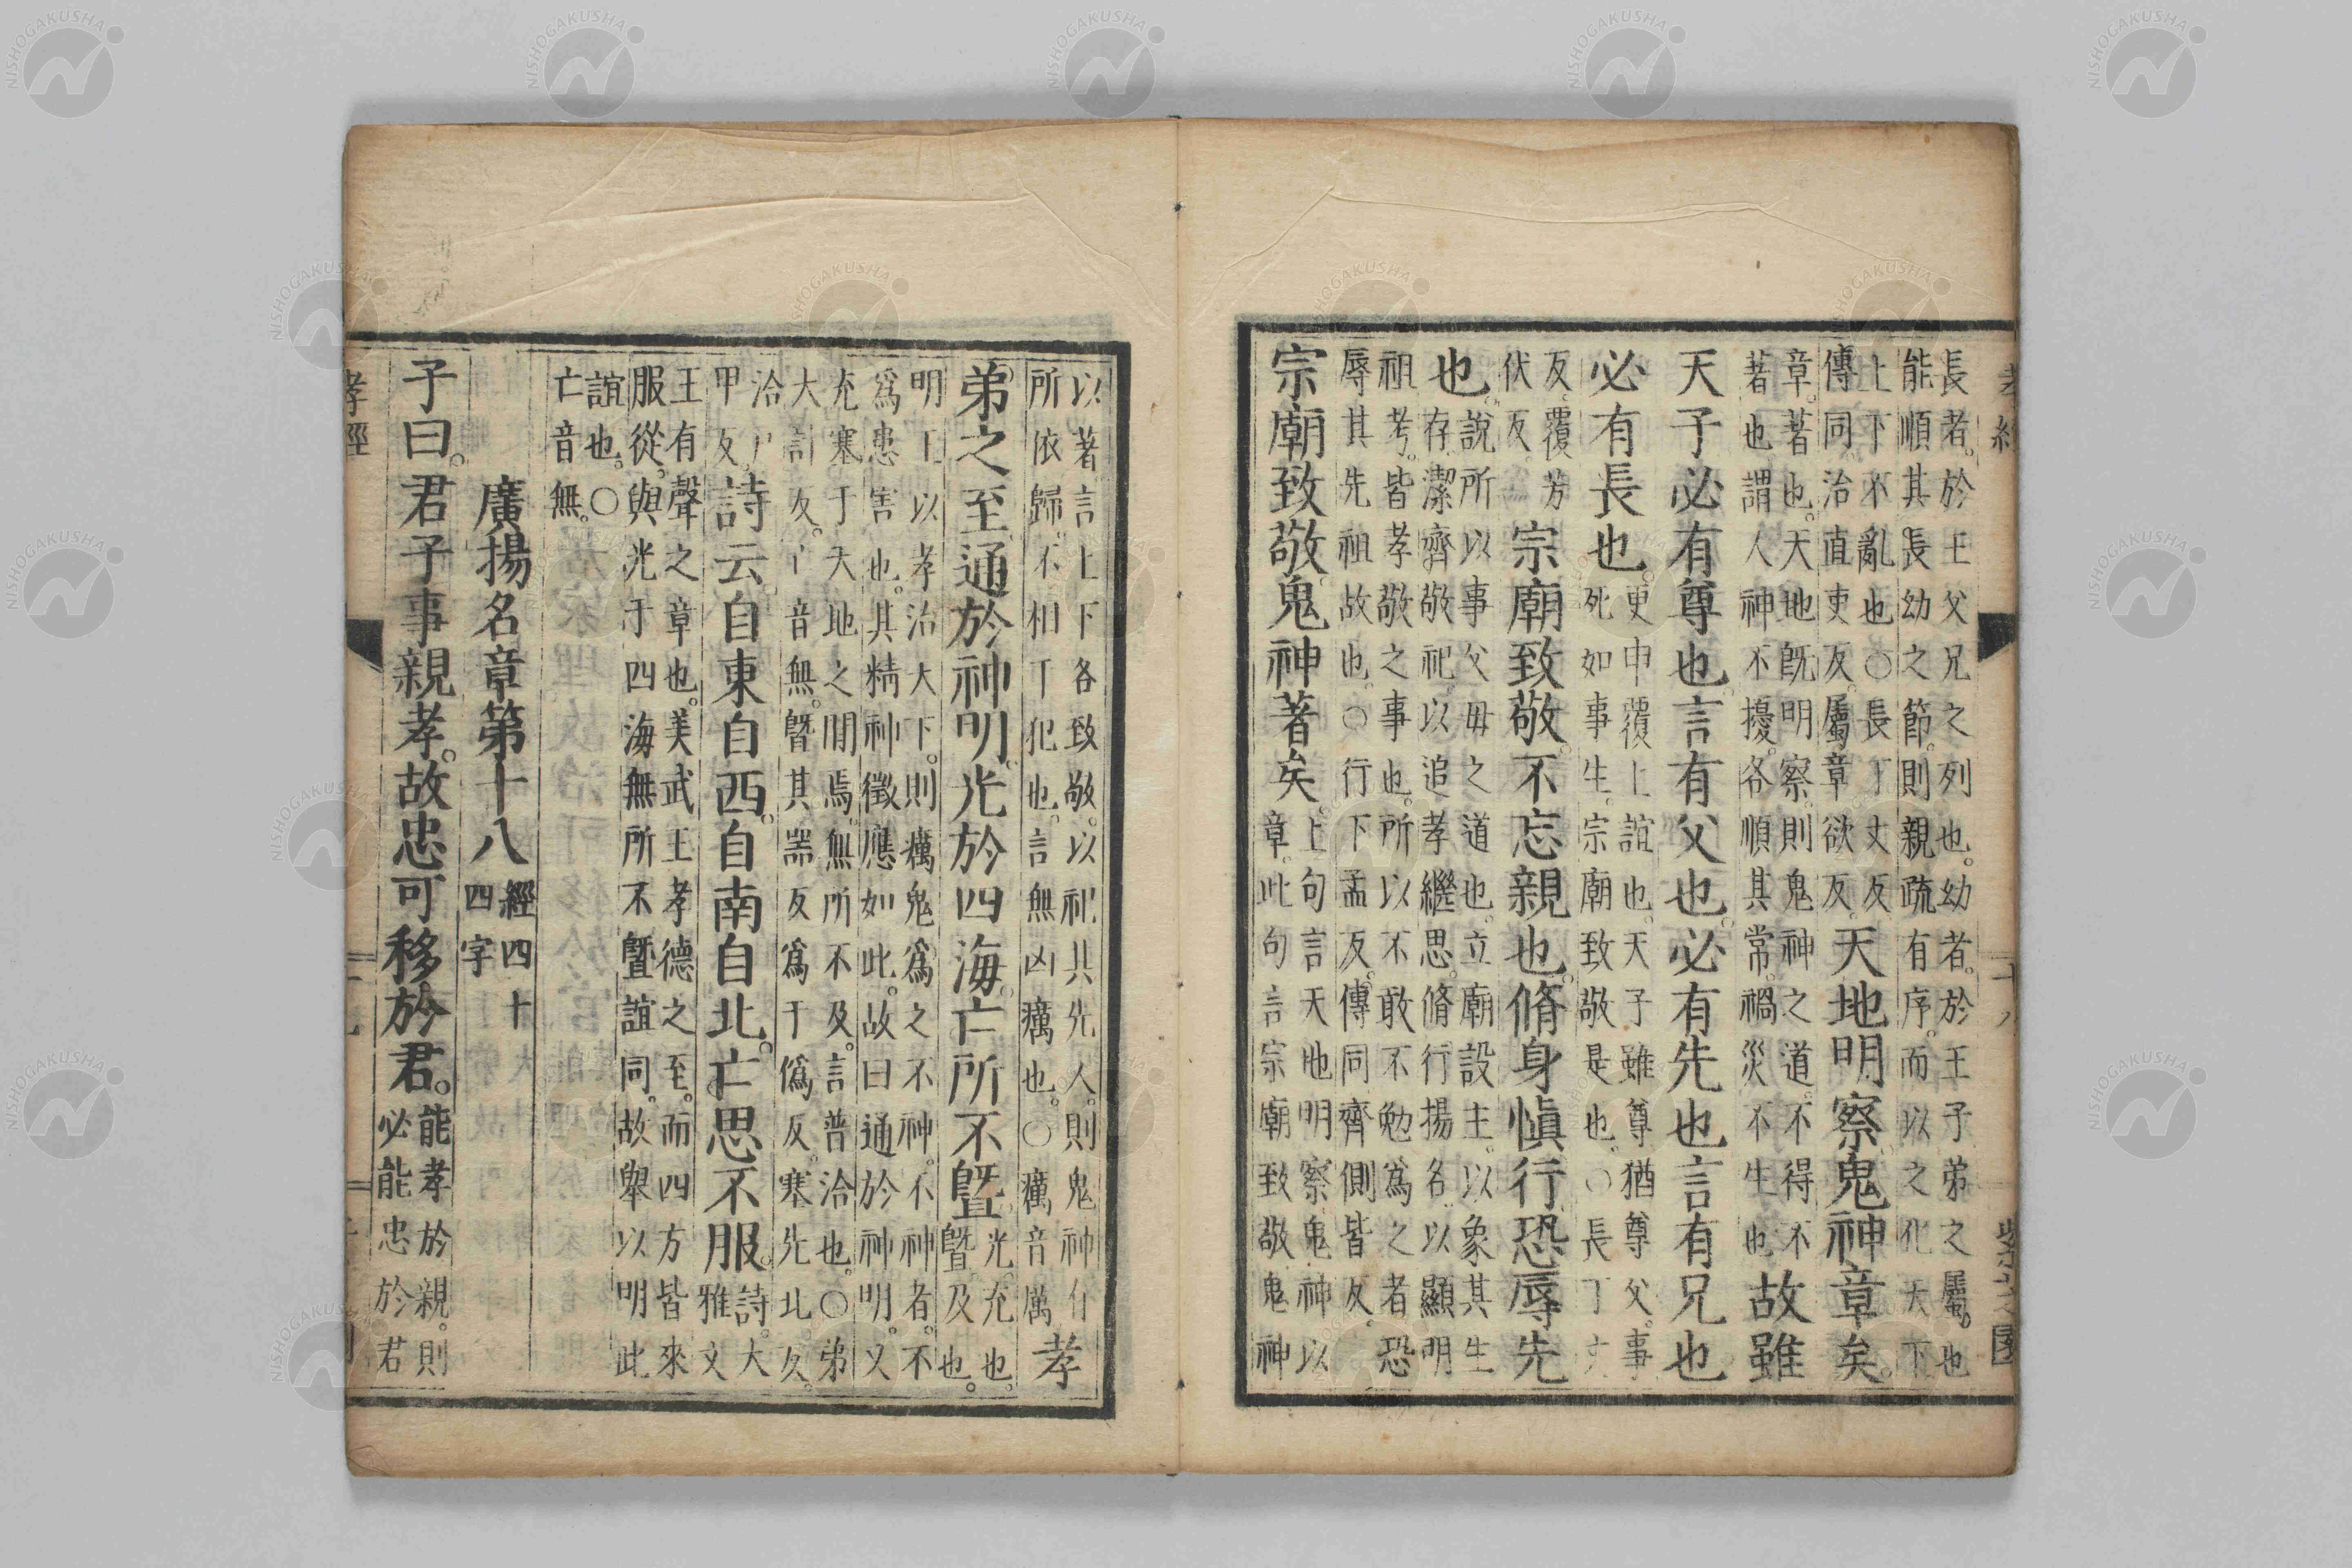 長者。於王父兄之列也。幼者。於王子弟之屬。也
能順其長幼之節。則親疏有序。而以之化天下
上下不亂也○長丁丈反
傳同。治直吏反。屬章欲反。
天地明察。鬼神章矣。
章。著也。天地既明察。則鬼神之道。不得不
著也謂人神不擾。各順其常。禍災不生也
故雖
天子必有尊也。言有父也。必有先也言有兄也
必有長也。
更申覆上誼也。天子雖尊猶尊父。事
死如事生。宗廟致敬是也。○長丁丈
反。覆芳
伏反
宗廟致敬。不忘親也。脩身愼行恐辱先
也。
說所以事父毋之道也。立廟設主。以象其生
存。潔齊敬祀。以追孝繼思。脩行揚名。以顯明
祖考。皆孝敬之事也。所以不敢不勉爲之者。恐
辱其先祖故也。○行下孟反。傳同齊側皆反。
宗廟致敬。鬼神著矣。
上句言天地明察鬼神以
章。此句言宗廟致敬鬼神
以著言上下各致敬。以祀其先人。則鬼神有
所依歸。不相干犯也。言無凶癘也。○癘音厲
孝
弟之至。通於神明。光於四海。亡所不曁。
光。充也。
曁。及也。
明王以孝治大下。則癘鬼爲之不神。不神者。不
爲患害也。其精神徵應如此。故曰通於神明。又
充塞于天地之閒焉。無所不及。言普洽也。○弟
大計反。亡音無。曁其器反爲于僞反。塞先北反。
洽戶
甲反。
詩云。自東自西。自南自北。亡思不服。
詩。大
雅文
王有聲之章也。美武王孝德之至。而四方皆來
服從。與光于四海無所不曁誼同。故舉以明此
誼也。○
亡音無。
廣揚名章第十八
經四十
四字
子曰。君子事親孝。故忠可移於君。
能孝於親。則
必能忠於君
孝經